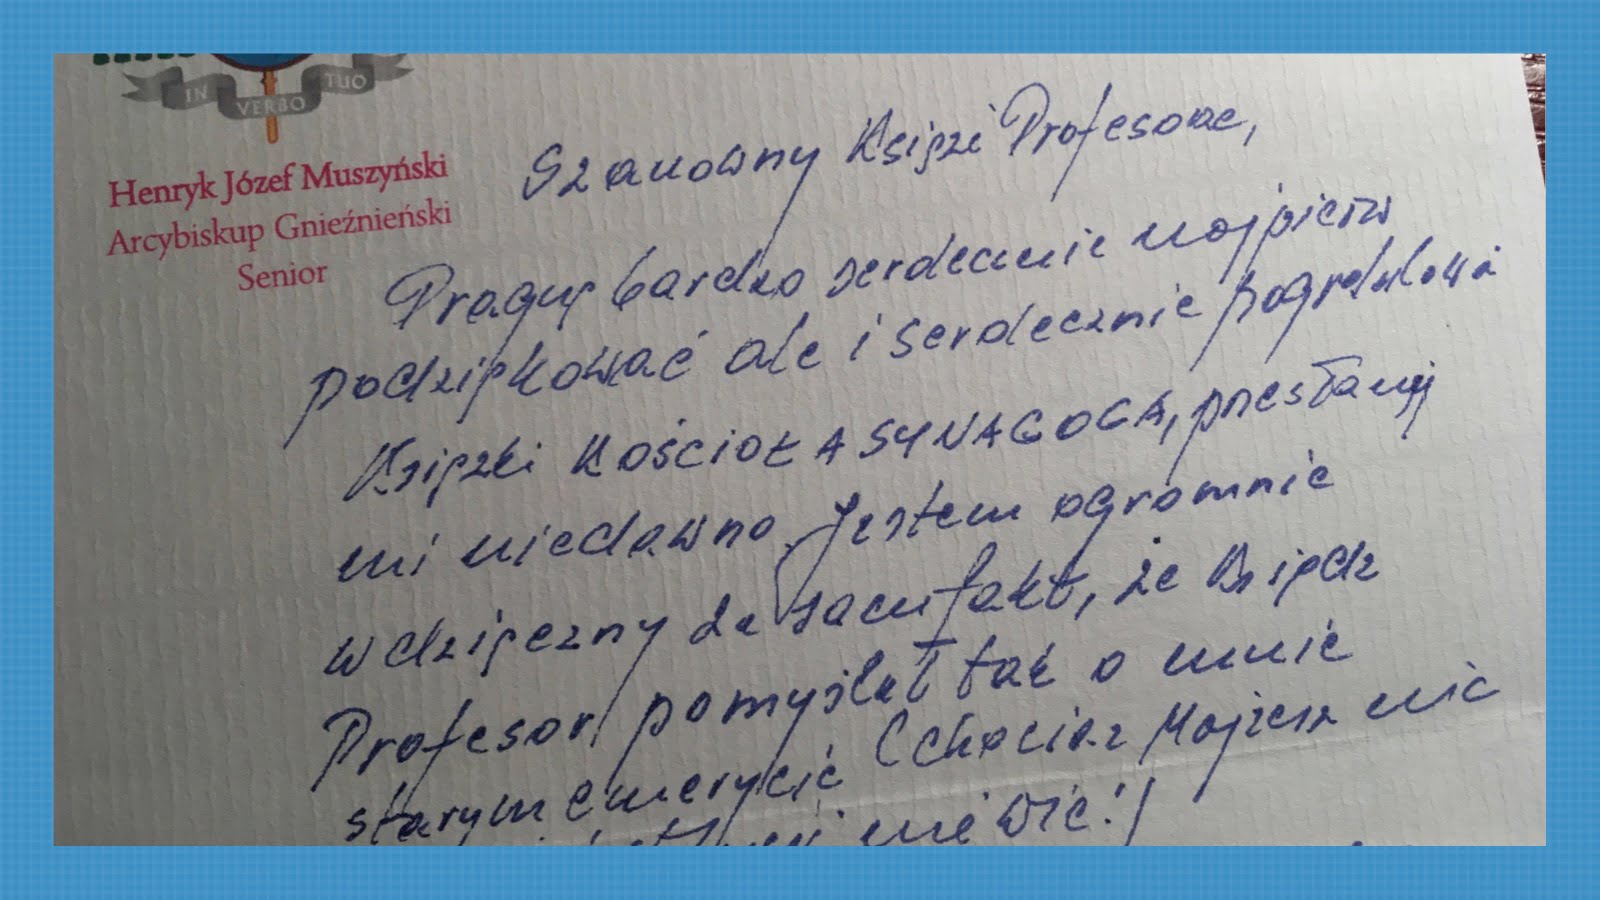 IN VERBO TUO
Henryk Józef Muszyński
Arcybiskup Gnieźnieński
Senior
Szanowny Księże Profesorze,
Pragnę bardzo serdecznie najpierw
podziękować ale i serdecznie pogratulować
Książki KOŚCIÓŁ A SYNAGOGA, przesłanej
mi niedawno. Jestem ogromnie
wdzięczny za sam fakt, że Ksiądz
Profesor pomyślał tak o mnie
starym emerycie (chociaż Mojżesz nic
nie wić!)